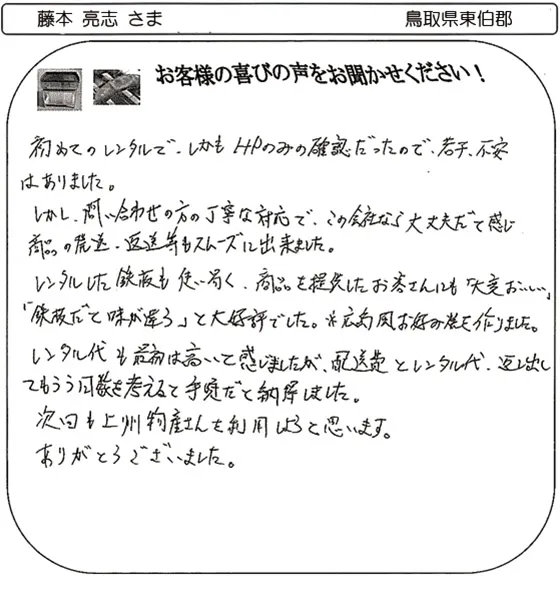 藤本 亮志 さま 鳥取県東伯郡
お客様の喜びの声をお聞かせください！
初めてのレンタルで、しかもHPのみの確認だったので、若干、不安
はありました。
しかし、問い合わせの方の丁寧な対応で、この会社なら大丈夫だと感じ
商品の発送・返送等もスムーズに出来ました。
レンタルした鉄板も使い易く、商品を提供したお客さんにも「大変おいしい」
「鉄板だと味が違う」と大好評でした。※広島風お好み焼を作りました。
レンタル代も最初は高いと感じましたが、配送費とレンタル代、返し出し
てもらう回数を考えると手頃だと納得しました。
次回も上州物産さんを利用しようと思います。
ありがとうございました。